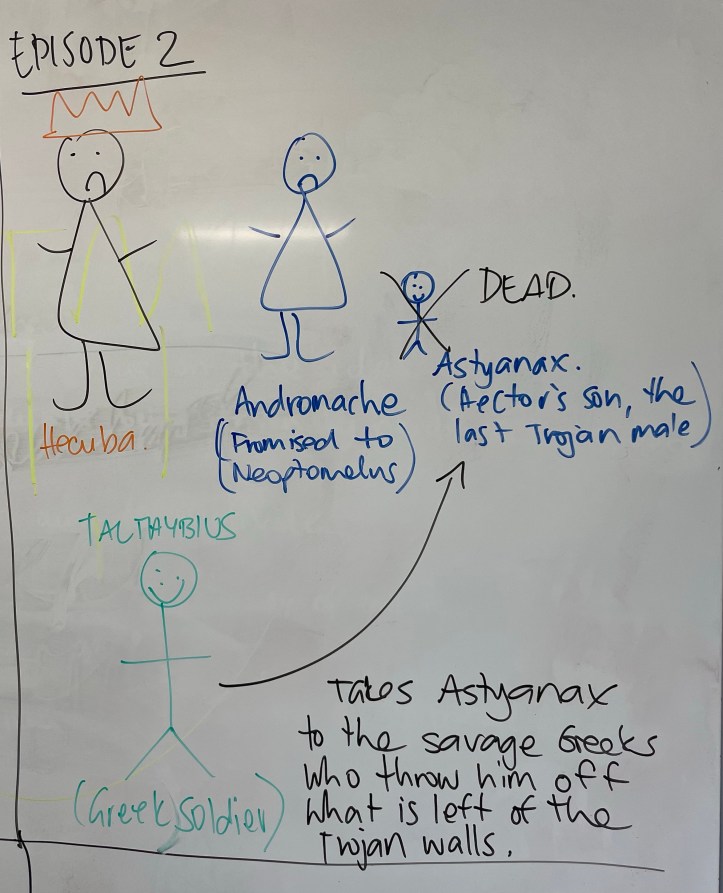 EPISODE 2
DEAD.
Astyanax.
(Hector's son, the
last Trojan male)
Andromache
(Promised to
Neoptomelus)
Hecuba.
TALTHYBIUS
(Greek soldier)
Takes Astyanax
to the savage Greeks
who throw him off
what is left of the
Trojan walls.